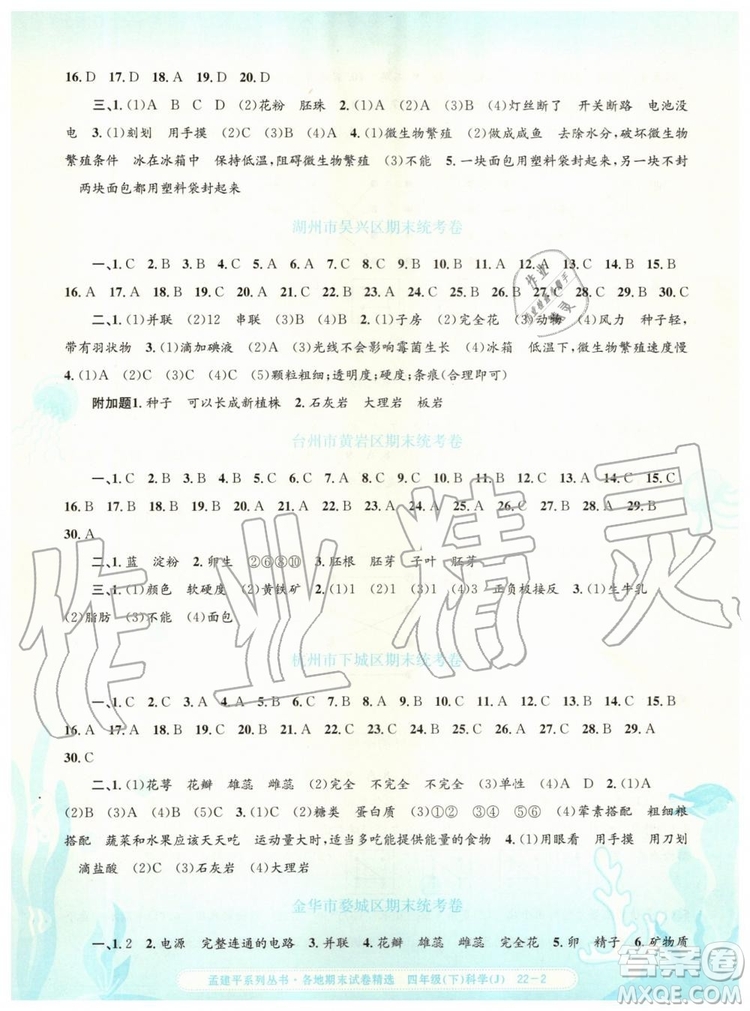 16. D 17. D 18. A 19. A 20. D
三、1. (1)A B C D (2)花粉 胚珠 2. (1)A (2)C (3)B (4)灯丝断了 开关断路 电池没
电 3. (1)刻划 用手摸 (2)A (3)B 4. (1)微生物繁殖 (2)做成咸鱼 去除水分，破坏微生物
繁殖条件 冰在冰箱中 保持低温，阻碍微生物繁殖 (3)不能 5. 一块面包用塑料袋封起来，另一块不封
两块面包都用塑料袋封起来
湖州市吴兴区期末统考卷
一、1. C 2. B 3. B 4. C 5. B 6. B 7. C 8. A 9. B 10. A 11. C 12. C 13. A 14. B 15. B
16. A 17. A 18. A 19. A 20. C 21. C 22. B 23. B 24. B 25. C 26. B 27. C 28. A 29. B 30. C
二、1. (1)并联 (2)12 串联 (3)B 2. (1)子房 (2)完全花 (3)动物 (4)风力 种子轻，
带有羽状物 3. (1)滴加碘液 (2)A (3)光线不会影响霉菌生长 (4)冰箱 低温下，微生物繁殖速度慢
4. (1)C (2)C (3)A (4)C (5)B (6)B (7)C (8)颗粒粗细；透明度；硬度；条痕(合理即可)
附加题1. 种子 可以长成新植株 2. 石灰岩 大理岩 板岩
台州市黄岩区期末统考卷
一、1. C 2. B 3. B 4. C 5. A 6. B 7. B 8. B 9. C 10. B 11. B 12. B 13. C 14. C 15. C
16. B 17. B 18. A 19. C 20. A 21. C 22. C 23. A 24. C 25. B 26. A 27. B 28. A 29. B
30. A
二、1. 蓝 淀粉 2. 卵生 ②⑥⑧⑩ 3. 胚根 胚芽 子叶 胚芽
三、1. (1)颜色 软硬度 (2)黄铁矿 2. (1)1 (2)1 (3)1 (4)3 正负极接反 3. (1)生牛乳
(2)脂肪 (3)不能 (4)面包
杭州市下城区期末统考卷
一、1. C 2. C 3. A 4. A 5. A 6. B 7. C 8. A 9. B 10. B 11. C 12. C 13. C 14. C 15. B
16. A 17. A 18. A 19. C 20. A 21. C 22. B 23. C 24. C 25. C 26. B 27. B 28. B 29. A
30. C
二、1. (1)花萼 花瓣 雄蕊 雌蕊 (2)完全 不完全 完全 (3)B (4)单性 2. (1)A
(2)B (3)A (4)C 3. (1)C (2)糖类 蛋白质 (3)①② ③④ ⑤⑥ (4)荤素搭配 粗细粮
搭配 蔬菜和水果应该天天吃 运动量大时，适当多吃能提供能量的食物 4. (1)用眼看 用手摸 用刀划
滴盐酸 (2)C (3)石灰岩 (4)大理岩
金华市婺城区期末统考卷
一、1. 2 2. 电源 完整连通的电路 3. 并联 4. 花瓣 雄蕊 雌蕊 5. 卵 精子 6. 矿物质
孟建平系列丛书·各地期末试卷精选 四年级(下)科学(J) 22-2
作业精灵
答案圈
MXQE.COM